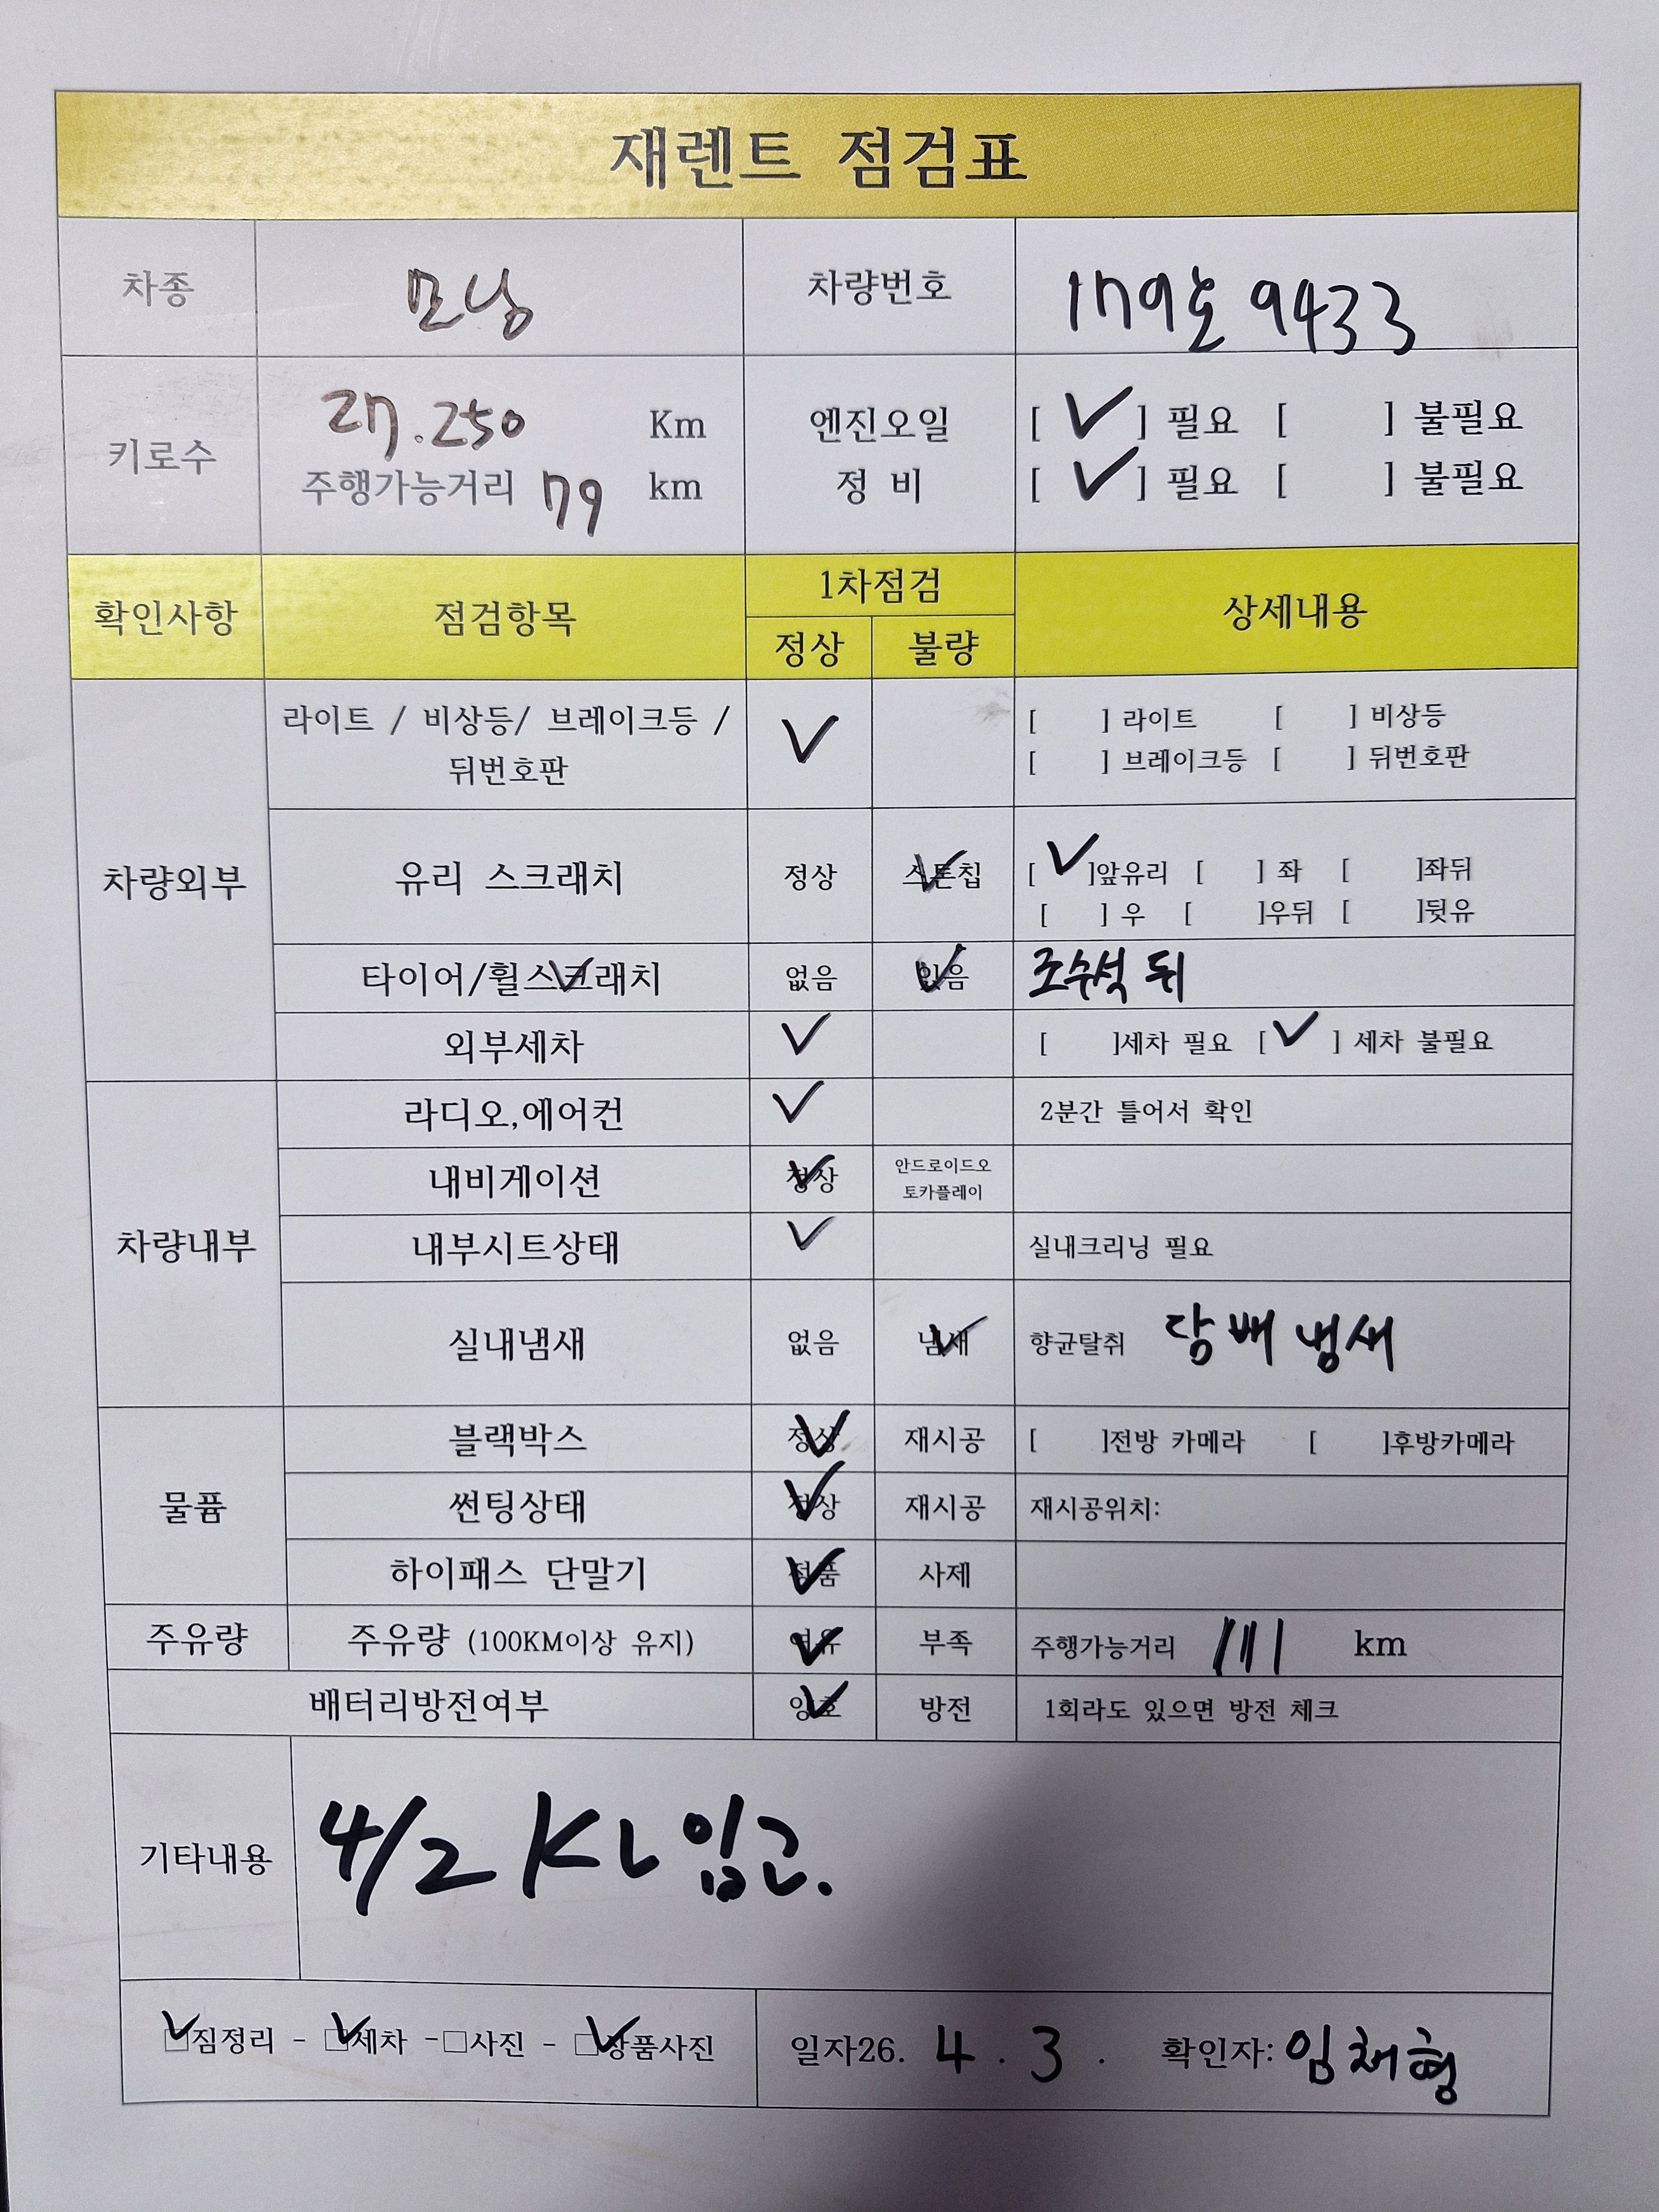 재렌트 점검표
차종 모닝 차량번호 179호 9433
키로수 27.250 Km 엔진오일 [ ✓ ] 필요 [ ] 불필요
주행가능거리 79 km 정 비 [ ✓ ] 필요 [ ] 불필요
확인사항 점검항목 1차점검 상세내용
정상 불량
차량외부
라이트 / 비상등/ 브레이크등 / ✓ [ ] 라이트 [ ] 비상등
뒤번호판 [ ] 브레이크등 [ ] 뒤번호판
유리 스크래치 정상 스톤칩 ✓ [ ✓ ]앞유리 [ ] 좌 [ ]좌뒤
[ ] 우 [ ]우뒤 [ ]뒷유
타이어/휠스크래치 ✓ 없음 있음 ✓ 조수석 뒤
외부세차 ✓ [ ]세차 필요 [ ✓ ] 세차 불필요
차량내부
라디오,에어컨 ✓ 2분간 틀어서 확인
내비게이션 정상 ✓ 안드로이드오
토카플레이
내부시트상태 ✓ 실내크리닝 필요
실내냄새 없음 냄새 ✓ 향균탈취 담배 냄새
물품
블랙박스 정상 ✓ 재시공 [ ]전방 카메라 [ ]후방카메라
썬팅상태 정상 ✓ 재시공 재시공위치:
하이패스 단말기 정품 ✓ 사제
주유량 주유량 (100KM이상 유지) 여유 ✓ 부족 주행가능거리 111 km
배터리방전여부 양호 ✓ 방전 1회라도 있으면 방전 체크
기타내용 4/2 KL 입고.
✓ □짐정리 - ✓ □세차 -□사진 - ✓ □상품사진 일자26. 4 . 3 . 확인자: 임채형